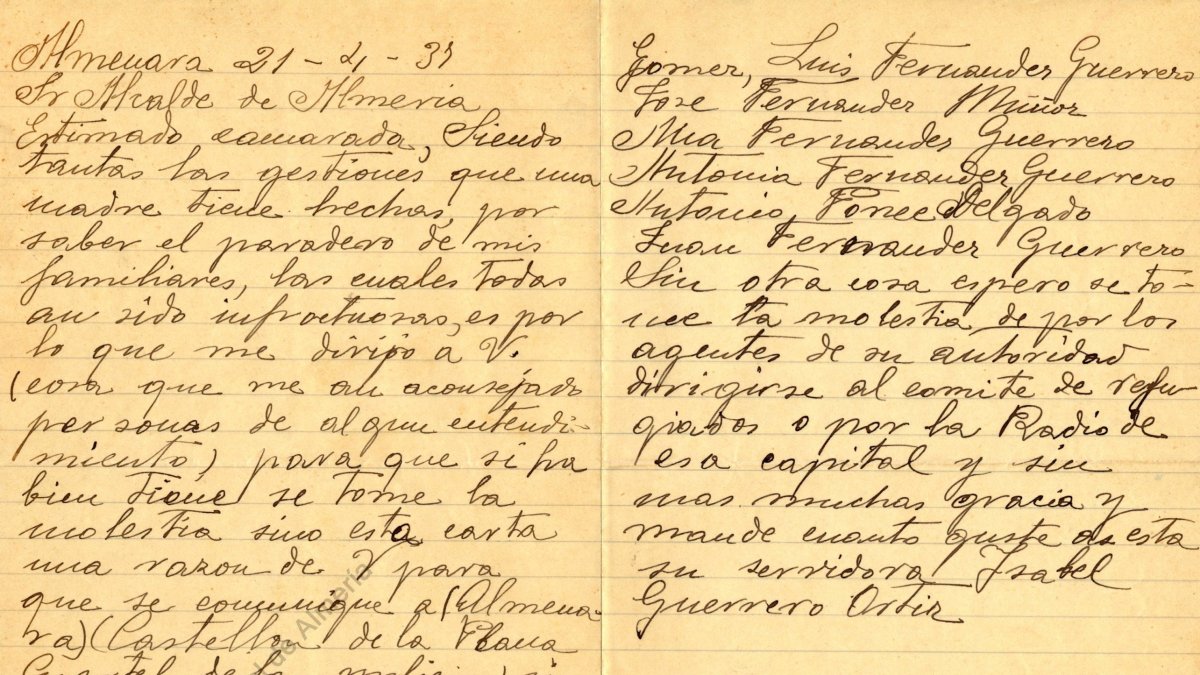 Almenara 21-4-37
Sr Alcalde de Almeria
Estimado camarada, Siendo
tantas las gestiones que una
madre tiene hechas, por
saber el paradero de mis
familiares, las cuales todas
an sido infroctuosas, es por
lo que me dirijo a V.
(cosa que me an aconsejado
personas de algun entendi-
miento) para que si ha
bien tiene se tome la
molestia sino esta carta
una razon de V para
que se comunique a (Almena-
ra) (Castellon de la Plana
Cuartel de la
Gomez, Luis Fernandez Guerrero
Jose Fernandez Muñoz
Ana Fernandes Guerrero
Antonia Fernandez Guerrero
Antonio, Ponce Delgado
Juan Fernandez Guerrero
Sin otra cosa espero se to-
me la molestia de por los
agentes de su autoridad
dirigirse al comite de refu-
giados o por la Radio de
esa capital y sin
mas muchas gracia y
mande cuanto guste as esta
su servidora Isabel
Guerrero Ortiz
Almería